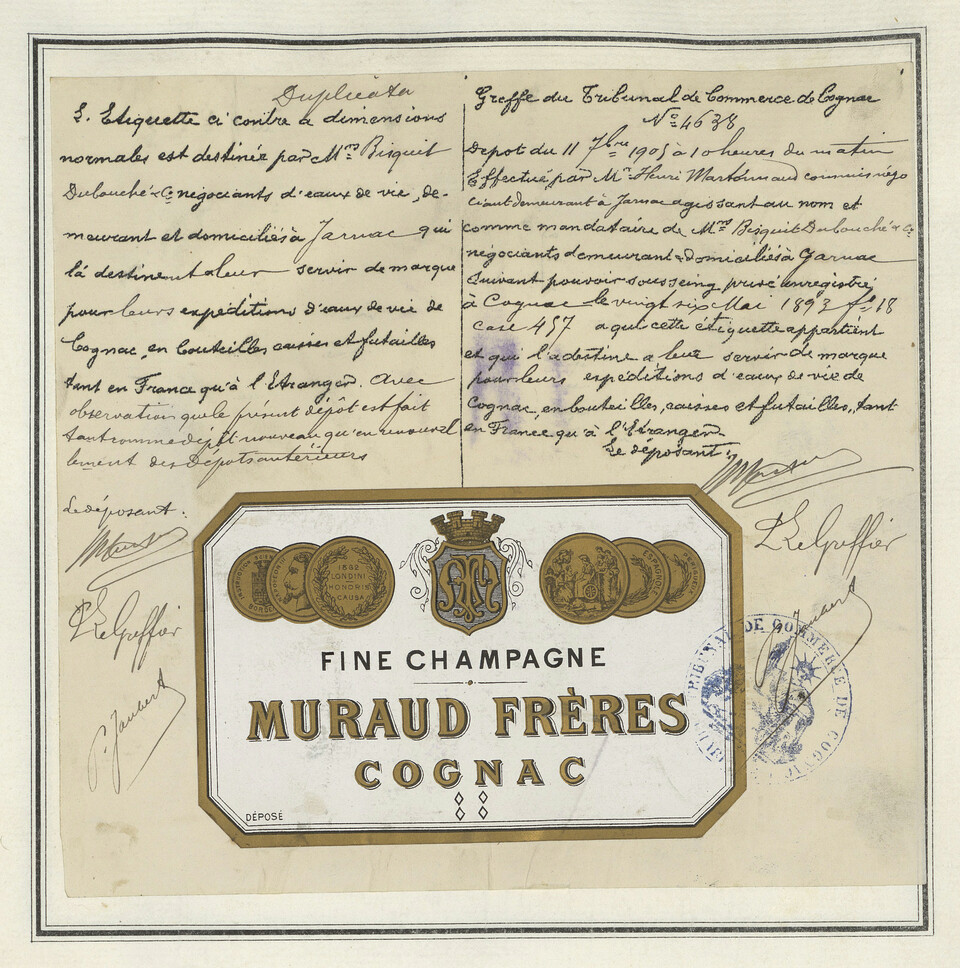 Duplicata
L. Etiquette ci contre a dimensions
normales est destinée par Mrs Bisquit
Dubouché & Ce négociants d'eaux de vie, de-
meurant et domiciliés à Jarnac qui
la destinent a leur servir de marque
pour leurs expéditions d'eaux de vie de
Cognac, en bouteilles caisses et futailles
tant en France qu'à l'Etranger. Avec
observation que le présent dépôt est fait
tant comme dépôt nouveau qu'en renouvel
lement des Dépots antérieurs
Le déposant:
Le Greffier
P. Jaubert
Greffe du Tribunal de Commerce de Cognac
No 4638
Depot du 11 7bre 1905 à 10 heures du matin
Effectué par Mr Henri commis négo
ciant demeurant à Jarnac agissant au nom et
comme mandataire de Mrs Bisquit Dubouché & Ce
négociants demeurant & domiciliés à Garnac
suivant pouvoir sous seing privé enregistré
à Cognac le vingt six Mai 1893 fo 18
case 457 a qui cette étiquette appartient
et qui l'a destine a leur servir de marque
pour leurs expéditions d'eaux de vie de
Cognac, en bouteilles, caisses et futailles, tant
en France, qu'à l'Etranger
Le déposant:
Le Greffier
P. Jaubert
1862
LONDINI
HONORIS
CAUSA
FINE CHAMPAGNE
MURAUD FRÈRES
COGNAC
DÉPOSÉ
TRIBUNAL DE COMMERCE DE COGNAC